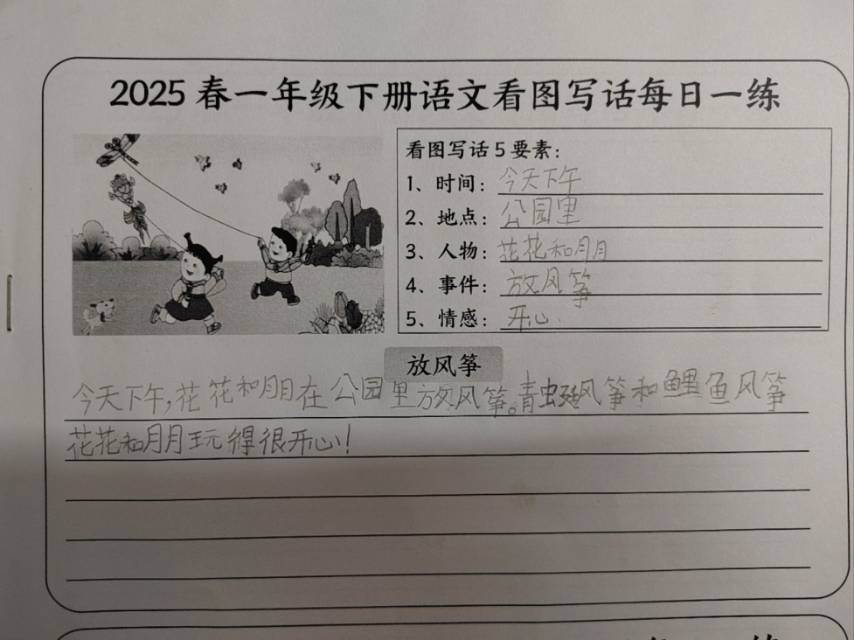 2025春一年级下册语文看图写话每日一练
看图写话5要素：
1、时间：今天下午
2、地点：公园里
3、人物：花花和朋朋
4、事件：放风筝
5、情感：开心.
放风筝
今天下午,花花和朋朋在公园里放风筝。青蜓风筝和鲤鱼风筝
花花和朋朋玩得很开心!